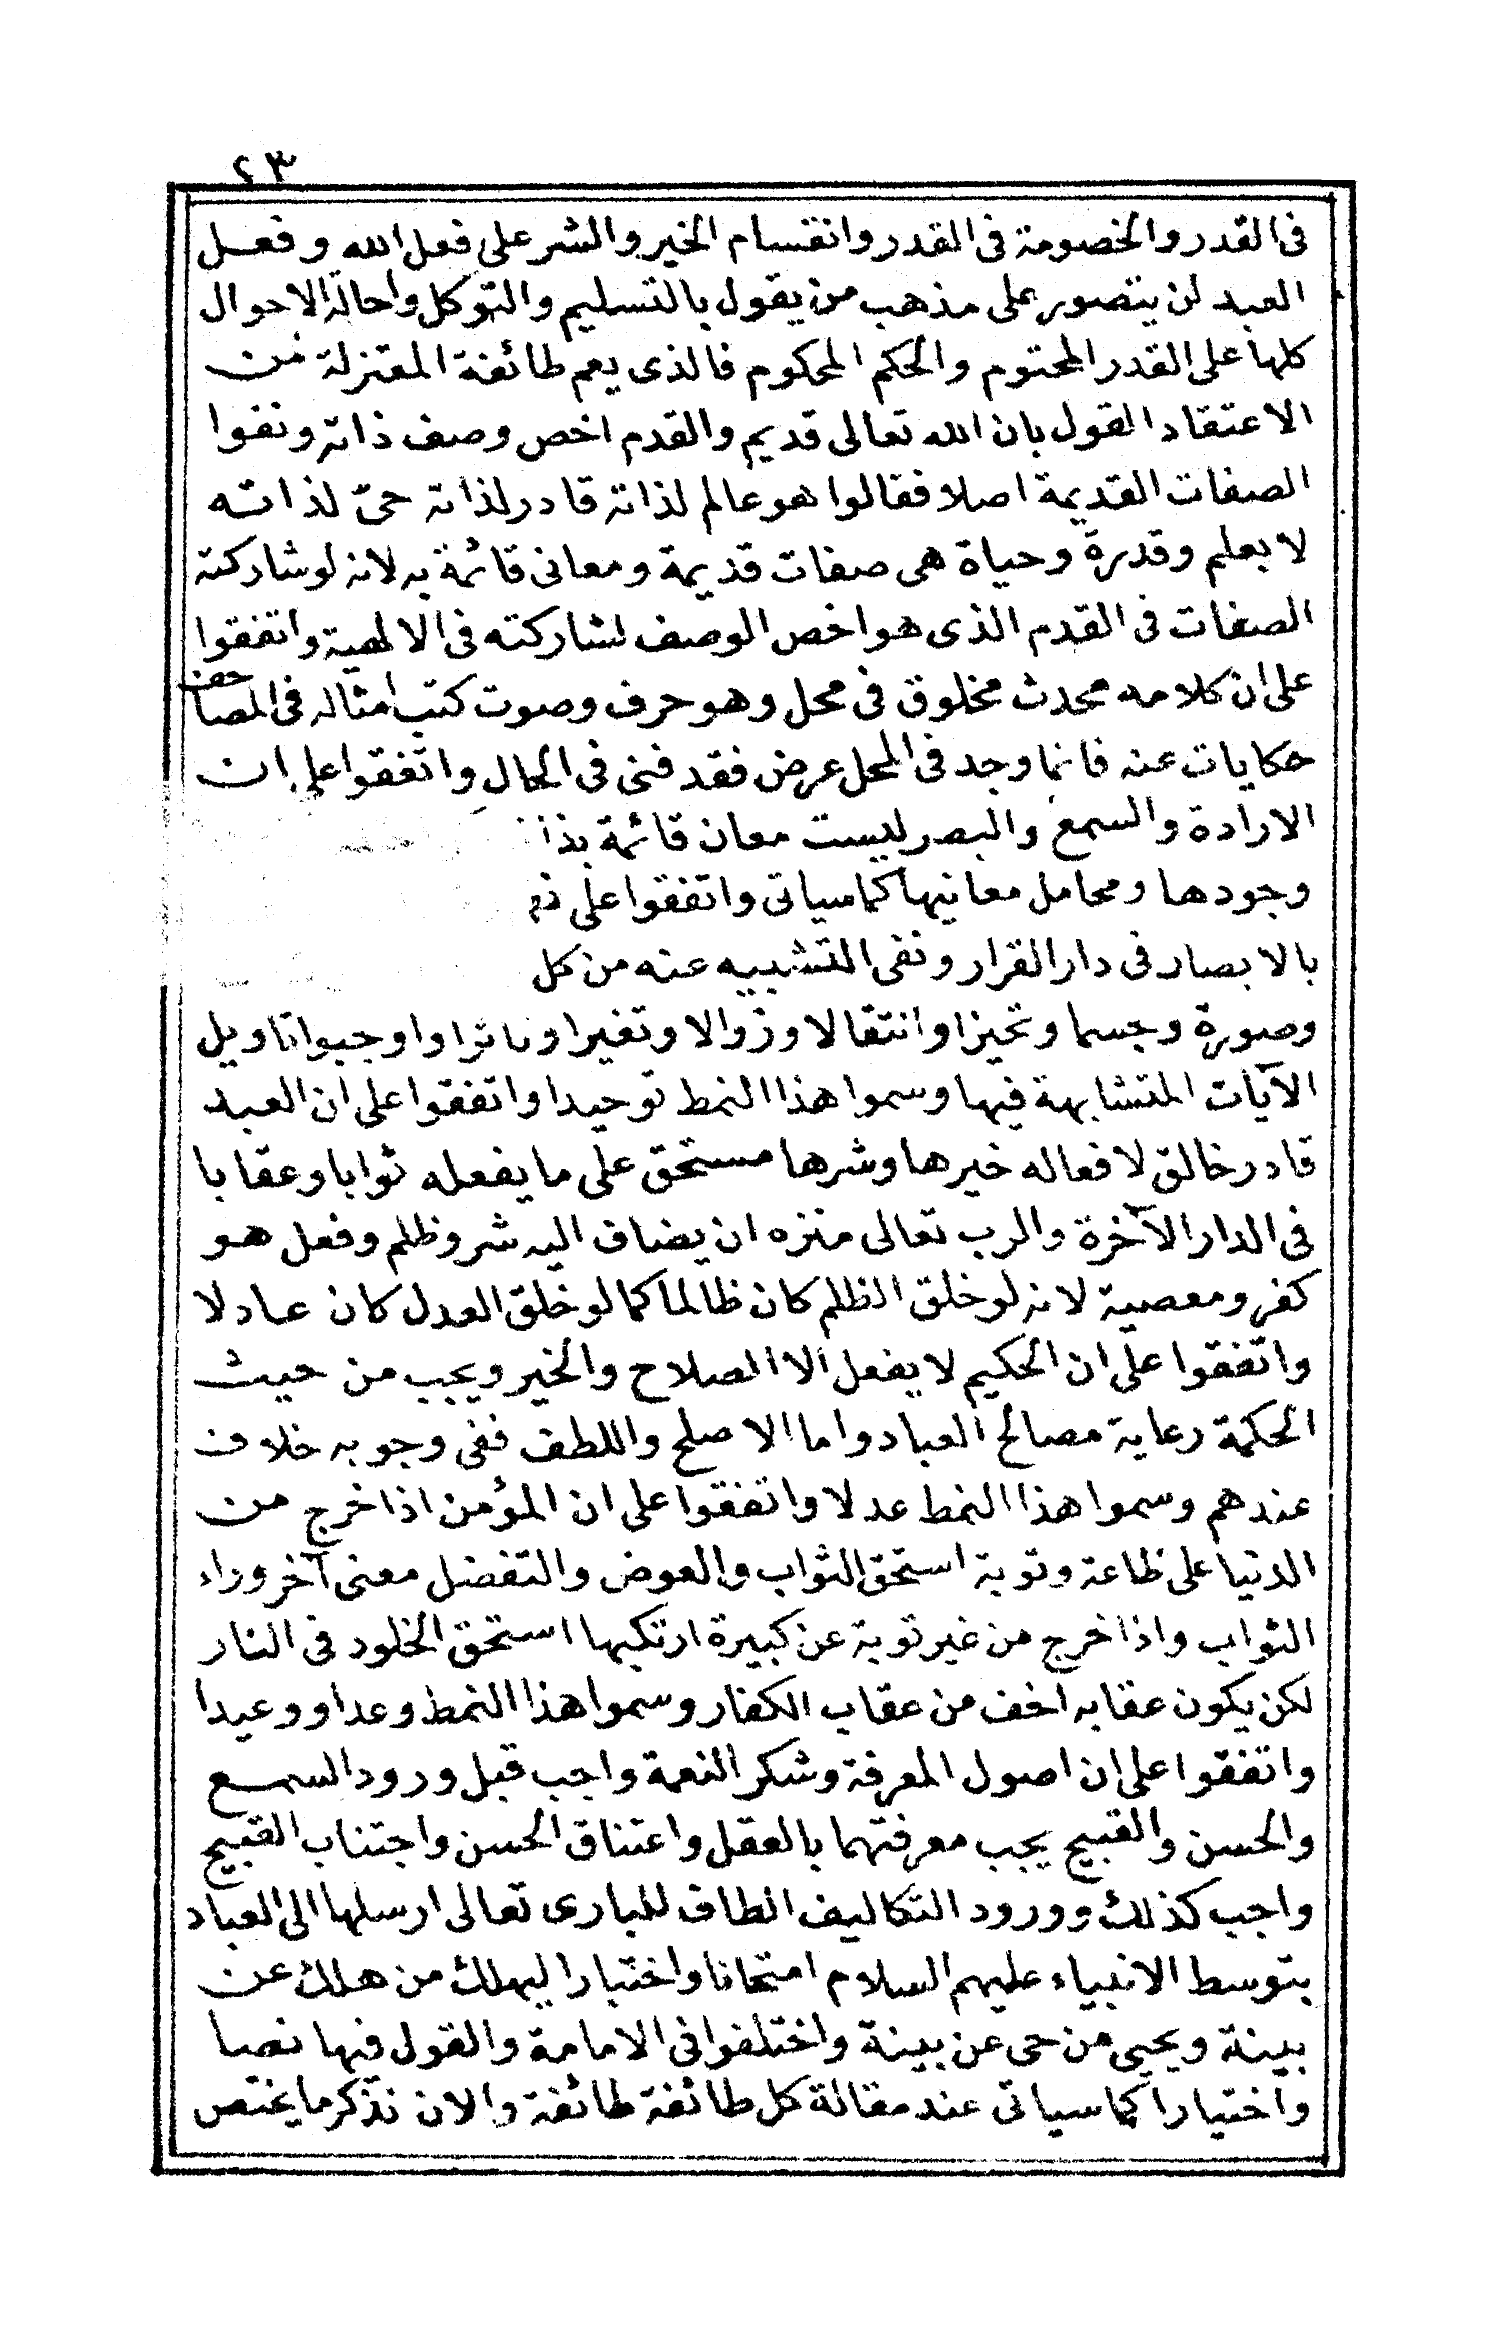 ٢٣
فى القدر والخصومة فى القدر وانقسام الخير والشر على فعل الله وفعل
العبد لن يتصور على مذهب من يقول بالتسليم والتوكل واحالة الاحوال
كلها على القدر المحتوم والحكم المحكوم فالذى يعم طائفة المعتزلة من
الاعتقاد القول بان الله تعالى قديم والقدم اخص وصف ذاته ونفوا
الصفات القديمة اصلا فقالوا هو عالم لذاته قادر لذاته حىّ لذاته
لا بعلم وقدرة وحياة هى صفات قديمة ومعانى قائمة به لانه لو شاركته
الصفات فى القدم الذى هو اخص الوصف لشاركته فى الالهية واتفقوا
على ان كلامه محدث مخلوق فى محل وهو حرف وصوت كتب امثاله فى المصاحف
حكايات عنه فانما وجد فى المحل عرض فقد فنى فى الحال واتفقوا على ان
الارادة والسمع والبصر ليست معان قائمة بذا
وجودها ومحامل معانيها كما سياتى واتفقوا على
بالابصار فى دار القرار ونفى التشبيه عنه من كل
وصورة وجسما وتحيزا وانتقالا وزوالا وتغيرا وتاثرا واوجبوا تاويل
الآيات المتشابهة فيها وسموا هذا النمط توحيدا واتفقوا على ان العبد
قادر خالق لافعاله خيرها وشرها مستحق على ما يفعله ثوابا وعقابا
فى الدار الآخرة والرب تعالى منزه ان يضاف اليه شر وظلم وفعل هو
كفر ومعصية لانه لو خلق الظلم كان ظالما كما لو خلق العدل كان عادلا
واتفقوا على ان الحكيم لا يفعل الا الصلاح والخير ويجب من حيث
الحكمة رعاية مصالح العباد واما الاصلح واللطف ففى وجوبه خلاف
عندهم وسموا هذا النمط عدلا واتفقوا على ان المؤمن اذا خرج من
الدنيا على طاعة وتوبة استحق الثواب والعوض والتفضل معنى آخر وراء
الثواب واذا خرج من غير توبة عن كبيرة ارتكبها استحق الخلود فى النار
لكن يكون عقابه اخف من عقاب الكفار وسموا هذا النمط وعدا ووعيدا
واتفقوا على ان اصول المعرفة وشكر النعمة واجب قبل ورود السمع
والحسن والقبيح يجب معرفتهما بالعقل واعتناق الحسن واجتناب القبيح
واجب كذلك وورود التكاليف الطاف للبارى تعالى ارسلها الى العباد
بتوسط الانبياء عليهم السلام امتحانا واختبارا ليهلك من هلك عن
بينة ويحيى من حى عن بينة واختلفوا فى الامامة والقول فيها نصا
واختيارا كما سياتى عند مقالة كل طائفة طائفة والان نذكر ما يختص